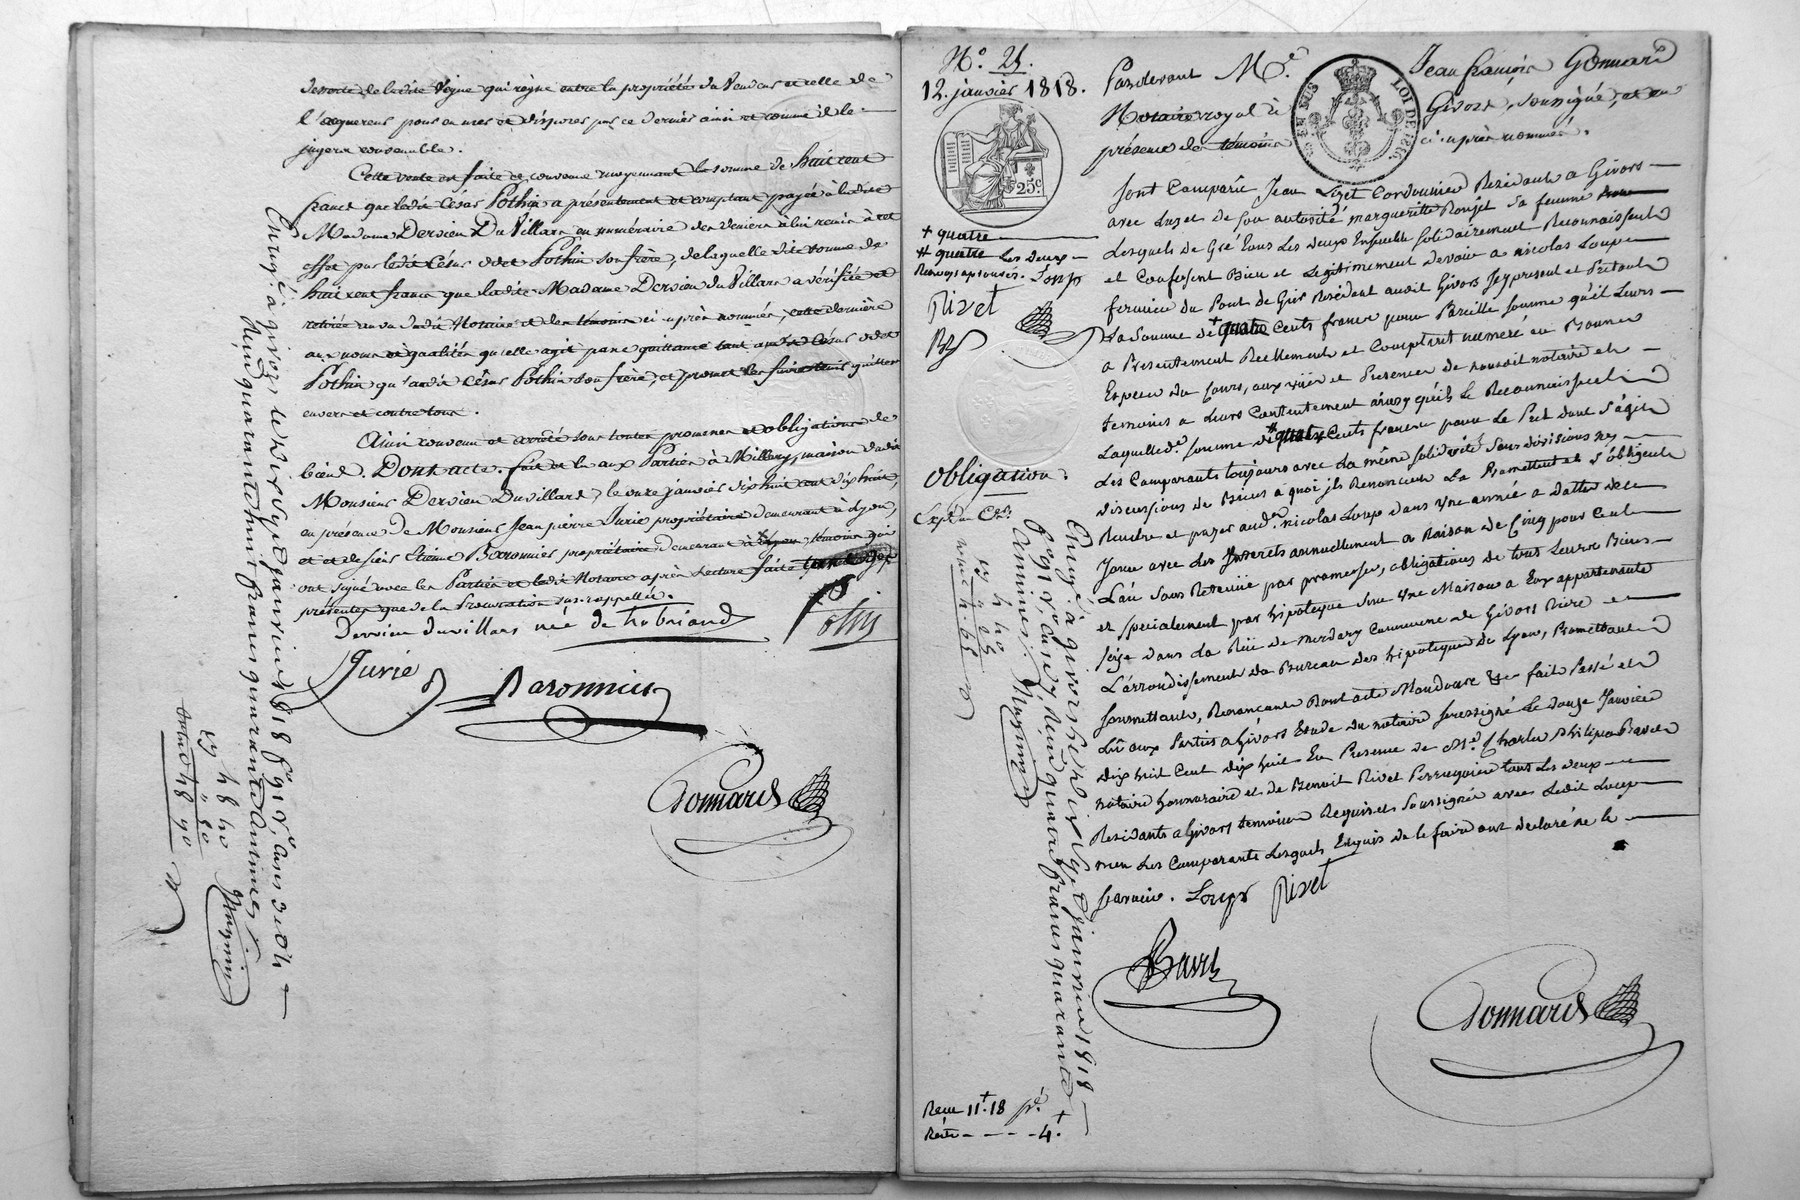 desserte de ladite Vigne qui règne entre la propriété du Vendeur et celle de
l'acquereur pour en user et disposer par ce dernier ainsi et comme il le
jugera convenable.
Cette vente est faite et convenue moyennant la somme de huit cent
francs que ledit César Pothin a présentement et comptant payée à ladite
Madame Dervieu Du Villars en numéraire des deniers à lui remis à cet
effet par ledit César odet Pothin son frère, de laquelle dite somme de
huit cent francs que ladite Madame Dervieu du Villars a vérifiée et
retirée au vu dudit Notaire et des témoins ci-après nommés, cette dernière
aux noms et qualités qu'elle agit passe quittance tant audit César odet
Pothin qu'audit César Pothin son frère, et promet les faire tenir quittes
envers et contre tous.
Ainsi convenu et arrêté sous toutes promesses et obligations de
biens. Dont acte. fait et lu aux Parties à Millery, maison dudit
Monsieur Dervieu Duvillard, le onze janvier dix huit cent dix huit,
en présence de Monsieur Jean pierre Jurie propriétaire demeurant à Lyon,
et de sieur Etienne Baronnier propriétaire demeurant à témoins qui
ont signé avec les Parties et ledit Notaire après Lecture faite tant des
présentes que de la Procuration sus-rappellée.
Dervieu duvillars née de trobriand
Pothin
Jurie
Baronnier
Gonnard
Enreg.é à givors le dix sept janvier 1818 f°
Reçu quarante huit francs quarante centimes
48 40
N° 25.
12. janvier 1818.
Pardevant Me. Jean françois Gonnard
Notaire royal à Givors, soussigné, et en
présence de témoins ci-après nommés.
LOI DE 1816.
25c.
+ quatre
# quatre Les deux
Renvoys aprouvés. Loup
Rivet
Sont Comparu Jean Lizet Cordonnier Résidant a Givors
avec Luy et de Son autorité marguerite Roujet Sa femme
Lesquels de Gré tous Les deux Ensemble Solidairement Reconnaissent
et Confessent Bien et Legitimement devoir a nicolas Loup
fermier du Pont de Gier Résidant audit Givors Icy present et Acceptant
La Somme de + quatre Cents francs pour Pareille Somme qu'il Leurs
a Présentement Réellement et Comptant numeré en Bonnes
Especes du Cours, aux vües et Presence de nousdit notaire et
temoins a Leurs Contentement ainsy qu'ils Le Reconnaissent
Laquelle de. Somme de # quatre Cents francs pour Le Pret dont S'agit
Les Comparants toujours avec La même Solidarité Sans divisions ny
discussions de Biens a quoi ils Renoncent La Promettent et S'obligent
Rendre et payer aud. nicolas Loup dans Une année a datter de ce
Jour avec Les Interets annuellement a Raison de Cinq pour Cent
L'an Sans Retenüe par promesses, obligations de tous Leurs Biens
et specialement par hipoteque Sur Une Maison a Eux appartenante
Sise dans La Rüe de Commune de Givors Rière
L'arrondissement du Bureau des hipoteques de Lyon, Promettant
Soumettant, Renonçant Dont acte Mandons & fait Passé et
Lû aux Parties a Givors Etude du notaire Soussigné Le douze Janvier
dix huit Cent dix huit En Presence de Me. Charles Philipe Baret
notaire honnoraire et de Benoit Rivet Perruquier tous Les deux
Residants a Givors temoins Requis et Soussignés avec Ledit Loup
non Les Comparants Lesquels Enquis de le faire ont declaré ne le
Savoir. Loup Rivet
Gonnard
obligation.
Enreg.é à givors le dix sept janvier 1818
Reçu quatre francs quarante
centimes
Reçu 11+.18
Reste - - - - 4.+